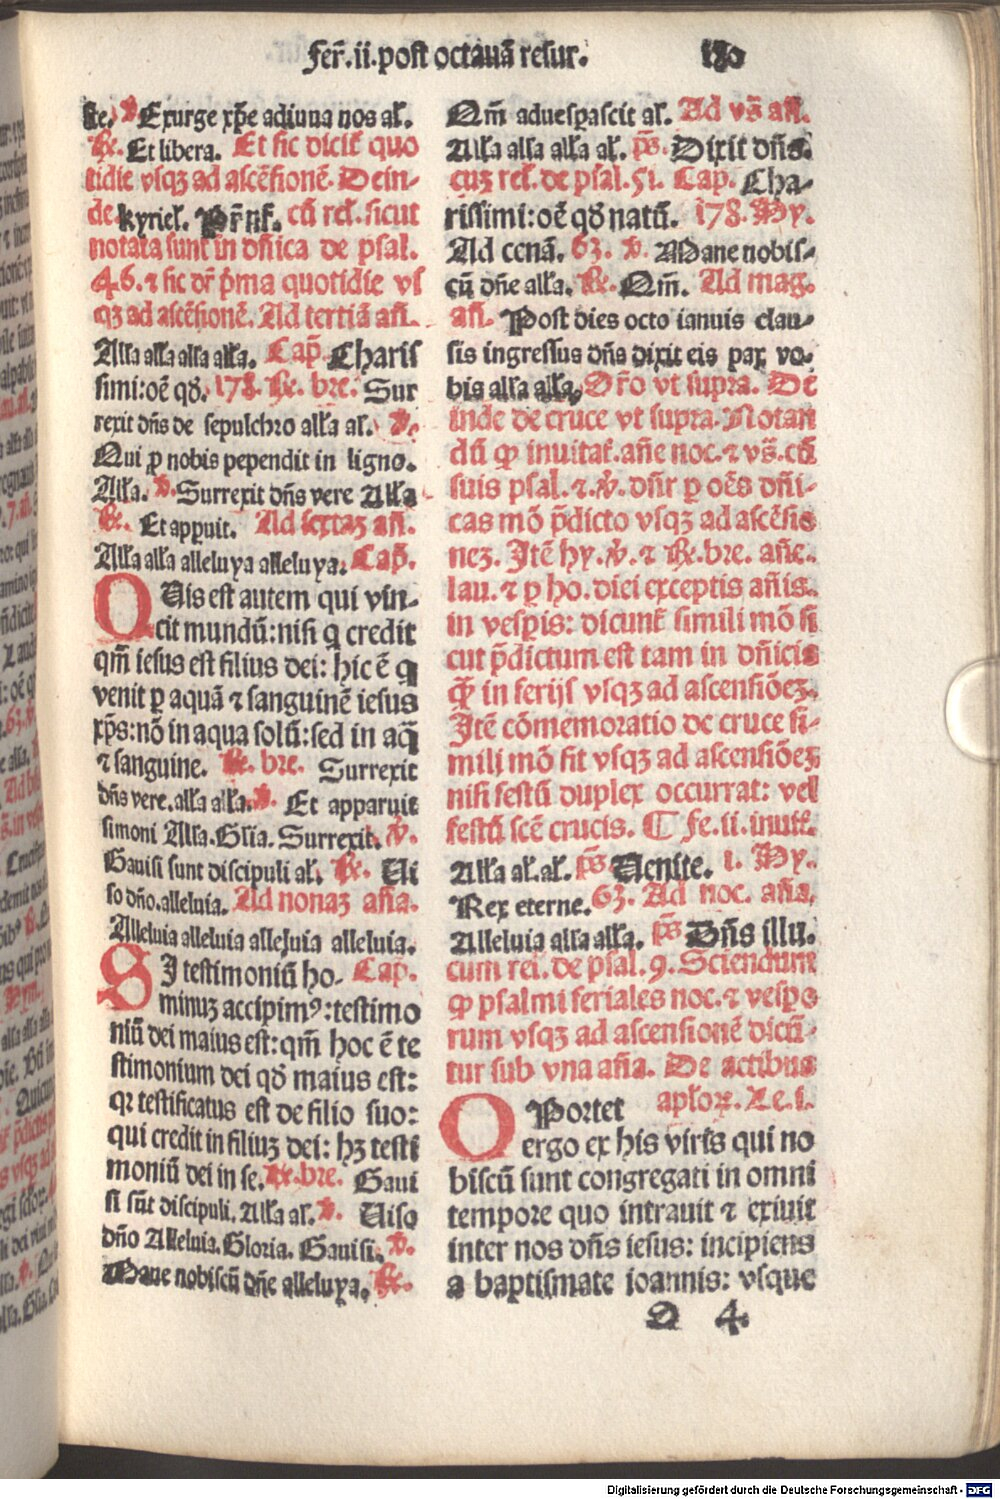 fer̃. ii. post octauã resur. 180
ste. ꝟ Exurge xp̃e adiuua nos al̃.
℟. Et libera. Et sic dicit̃ quo
tidie vsqꝫ ad ascẽsionẽ. Dein-
de kyriel̃. Pr̃ nr̃. cũ rel̃. sicut
notata sunt in dñica de psal.
46. ⁊ sic dr̃ p̃ma quotidie vs
qꝫ ad ascẽsionẽ. Ad tertiã añ.
All̃a all̃a all̃a all̃a. Cap̃. Charis
simi: oẽ qď. 178. ℟. bre. Sur
rexit dñs de sepulchro all̃a al̃. ꝟ.
Qui ꝓ nobis pependit in ligno.
All̃a. ꝟ. Surrexit dñs vere All̃a
℟. Et appuit. Ad sextaꝫ añ.
All̃a all̃a alleluya alleluya. Cap̃.
QUis est autem qui vin-
cit mundũ: nisi q̃ credit
qm̃ iesus est filius dei: hic ẽ q̃
venit ꝑ aquã ⁊ sanguinẽ iesus
xp̃s: nõ in aqua solũ: sed in aq̃
⁊ sanguine. ℟. bre. Surrexit
dñs vere. all̃a all̃a. ꝟ. Et apparuit
simoni All̃a. Gl̃ia. Surrexit. ꝟ.
Gauisi sunt discipuli al̃. ℟. Ui
so dño. alleluia. Ad nonaꝫ añа.
Alleluia alleluia alleluia alleluia.
SI testimoniũ ho- Cap.
minuꝫ accipimꝰ: testimo
niũ dei maius est: qm̃ hoc ẽ te
stimonium dei qď maius est:
qꝛ testificatus est de filio suo:
qui credit in filiuꝫ dei: hꝫ testi
moniũ dei in se. ℟. bre. Gaui
si sũt discipuli. All̃a al̃. ꝟ. Uiso
dño Alleluia. Gloria. Gauisi. ꝟ.
Mane nobiscũ dñe alleluya. ℟.
Qm̃ aduesꝑascit al̃. Ad vs̃ añ.
All̃a all̃a all̃a al̃. ps̃. Dixit dñs.
cuꝫ rel̃. de psal. 51. Cap̃. Cha-
rissimi: oẽ qď natũ. 178. Hy.
Ad cenã. 63. ꝟ. Mane nobis-
cũ dñe all̃a. ℟. Qm̃. Ad mag.
añ. Post dies octo ianuis clau-
sis ingressus dñs dixit eis pax vo-
bis all̃a all̃a. Or̃o vt supra. De
inde de cruce vt supra. Notan
dũ ꝙ inuitat̃. añe noc. ⁊ vs̃. cũ
suis psal. ⁊. ꝟ. dñr ꝑ oẽs dñi-
cas mõ p̃dicto vsqꝫ ad ascẽsio
neꝫ. Itẽ hy. ꝟ. ⁊ ℟. bre. añe.
lau. ⁊ ꝑ ho. dici exceptis añis.
in vesꝑis: dicunt̃ simili mõ si
cut p̃dictum est tam in dñicis
ꝙ̃ in ferijs vsqꝫ ad ascensiõeꝫ.
Itẽ cõmemoratio de cruce si-
mili mõ fit vsqꝫ ad ascensiõeꝫ
nisi festũ duplex occurrat: vel
festũ scẽ crucis. ¶ Fe. ii. inuit̃.
All̃a al̃. al̃. ps̃ Uenite. 1. Hy.
Rex eterne. 63. Ad noc. aña.
Alleluia all̃a all̃a. ps̃ Dñs illu.
cum rel̃. de psal. 9. Sciendum
ꝙ psalmi feriales noc. ⁊ vespe
rum vsqꝫ ad ascensionẽ dicũ-
tur sub vna aña. De actibus
aplõꝝ. Le. 1.
OPortet
ergo ex his viris qui no
biscũ sunt congregati in omni
tempore quo intrauit ⁊ exiuit
inter nos dñs iesus: incipiens
a baptismate ioannis: vsque
D 4
Digitalisierung gefördert durch die Deutsche Forschungsgemeinschaft - DFG